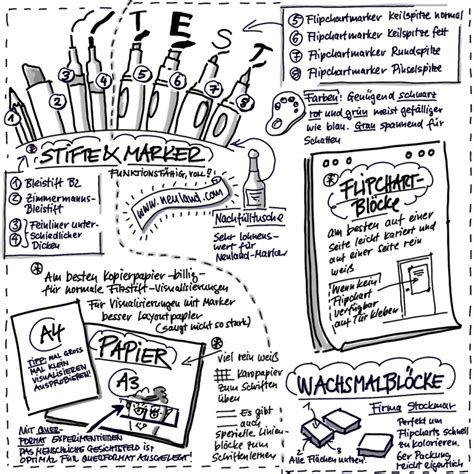 TEST
① ② ③ ④ ⑤ ⑥ ⑦ ⑧
⑤ Flipchartmarker Keilspitze normal
⑥ Flipchartmarker Keilspitze fett
⑦ Flipchartmarker Rundspitze
⑧ Flipchartmarker Pinselspitze
Farben: Genügend schwarz
rot und grün meist gefälliger
wie blau. Grau spannend für
Schatten
* STIFTE & MARKER
FUNKTIONSFÄHIG, VOLL!
① Bleistift B2
② Zimmermanns-
Bleistift
③ Feinliner unter-
④ schiedlicher
Dicken
www.neuland.com
Nachfülltusche
Sehr lohnens-
wert für
Neuland-Marker
* FLIPCHART-
BLÖCKE
am besten auf einer
Seite leicht kariert und
auf einer seite rein
weiß
Wenn kein
Flipchart
verfügbar
auf Tür kleben
* Am besten Kopierpapier – billig –
für normale Filzstift-Visualisierungen
Für Visualisierungen mit Marker
besser Layoutpapier
(saugt nicht so stark)
A4
TIPP: MAL GROSS
MAL KLEIN
VISUALISIEREN
AUSPROBIEREN!
PAPIER
A3
* Viel rein weiß
Karopapier
zum Schriften
üben
Es gibt
auch
spezielle Linien-
blöcke zum
Schriftenlernen
MIT QUER-
FORMAT EXPERIMENTIEREN
DAS MENSCHLICHE GESICHTSFELD IST
OPTIMAL FÜR QUERFORMAT AUSGELEGT!
WACHSMALBLÖCKE
Firma Stockmar
Perfekt um
Flipcharts schnell
zu kolorieren.
6er Packung
reicht eigentlich
Alle Flächen nutzen!